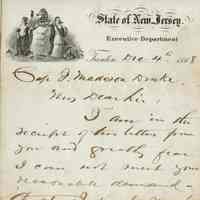 State of New Jersey.
Executive Department
Trenton Dec 4th 1868
Cap J. Madison Drake
My Dear Sir,
I am in the
receipt of this letter from
you and greatly fear
I can not meet your
reasonable demand